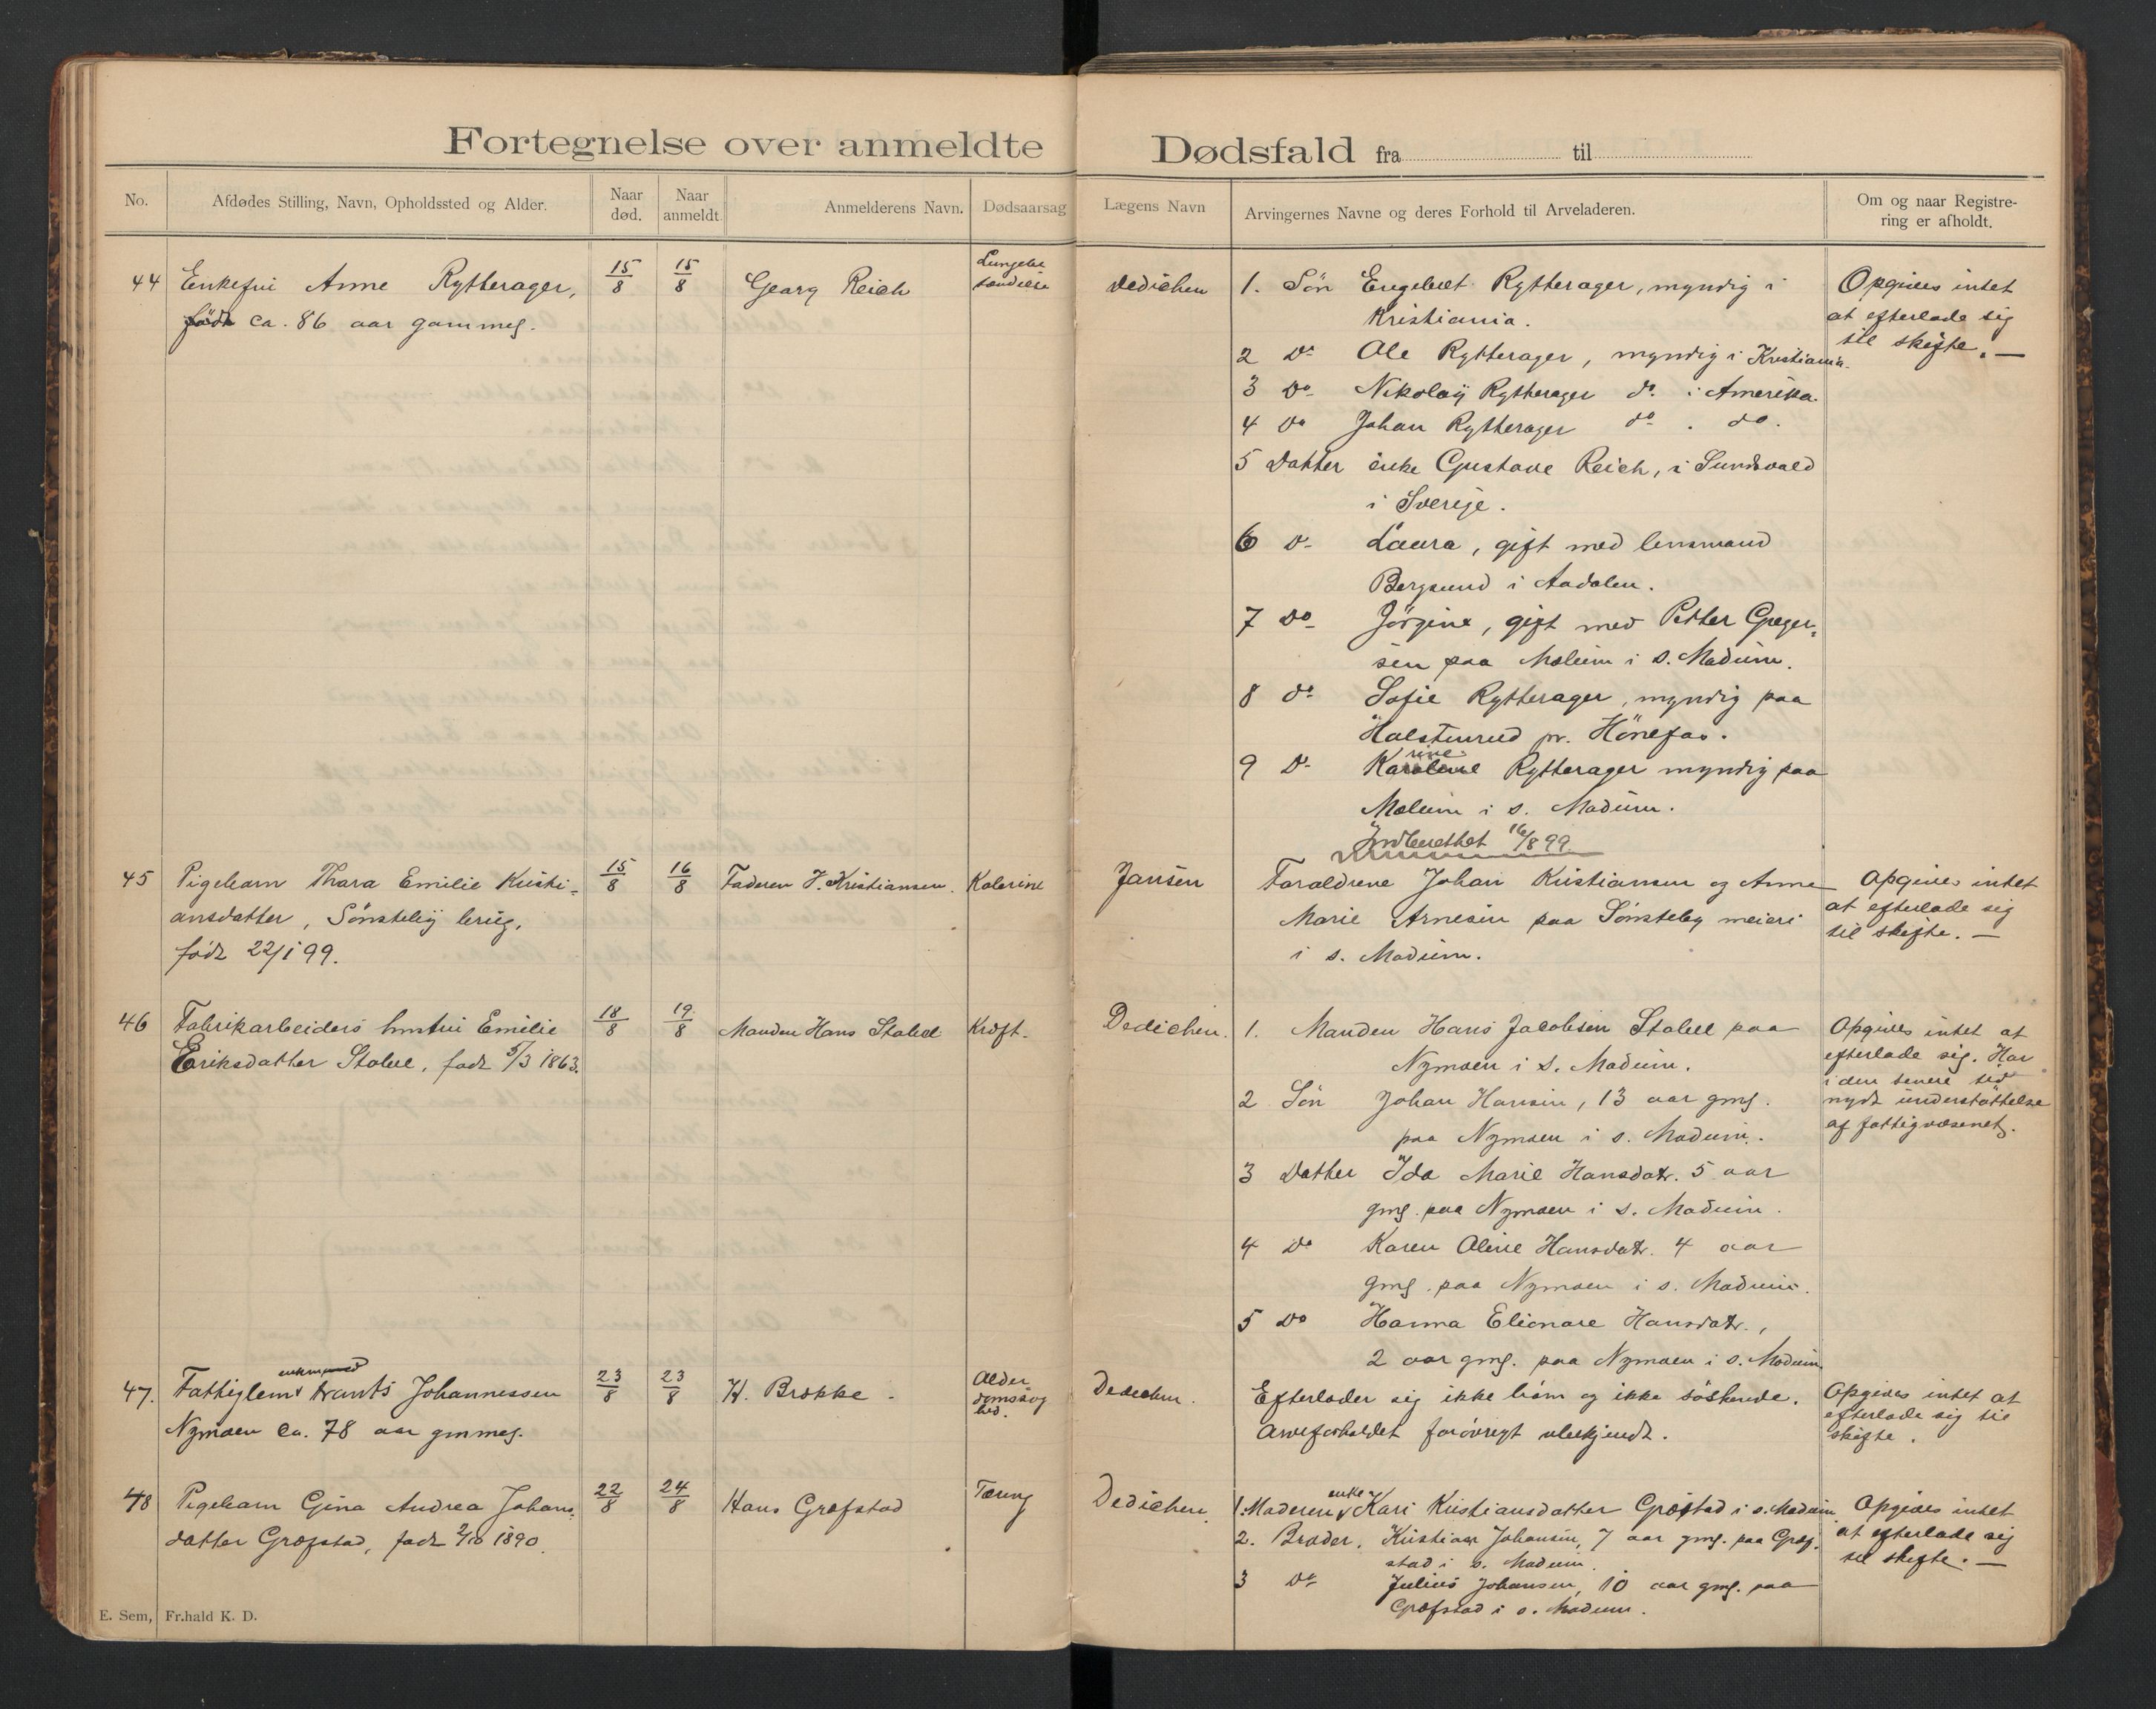 Fortegnelse over anmeldte Dødsfald fra til
No.
Afdødes Stilling, Navn, Opholdssted og Alder.
Naar død.
Naar anmeldt.
Anmelderens Navn.
Dødsaarsag
Lægens Navn
Arvingernes Navne og deres Forhold til Arveladeren.
Om og naar Registre-
ring er afholdt.
44 Enkefru Anne Rytterager,
født ca. 86 aar gammel.
15/8
15/8
Georg Reich
Lungebe
tændelse
Dedichen
1. Søn Engebret Rytterager, myndig i
Kristiania.
2 Do Ole Rytterager, myndig i Kristiania.
3 Do Nikolaij Rytterager do. i Amerika.
4 Do Johan Rytterager do . do.
5 Datter enke Gustave Reich, i Sundsvald
i Sverige.
6 D- Laura, gift med lensmand
Bergsund i Aadalen.
7 Do Jörgine, gift med Petter Greger-
sen paa Melum i s. Modum.
8 do Sofie Rytterager, myndig paa
Halstenrud pr. Hönefos.
rine
9 D- Karoline Rytterager myndig paa
Melum i s. Modum.
Indberettet 16/8 99.
Opgives intet
at efterlade sig
til skifte. —
45 Pigebarn Thara Emilie Kristi-
ansdatter, Sönsteby brug,
född 22/1 99.
15/8
16/8
Faderen J. Kristiansen.
Kolerine
Jansen
Forældrene Johan Kristiansen og Anne
Marie Arnesen paa Sönsteby meieri
i s. Modum.
Opgives intet
at efterlade sig
til skifte. —
46 Fabrikarbeiders hustru Emilie
Eriksdatter Stabel, født 5/3 1863.
18/8
19/8
Manden Hans Stabel
Kræft.
Dedichen.
1. Manden Hans Jacobsen Stabel paa
Nymoen i s. Modum.
2 Sön Johan Hansen, 13 aar gml.
paa Nymoen i s. Modum.
3 Datter Ida Marie Hansdatr. 5 aar
gml. paa Nymoen i s. Modum.
4 Do Karen Oline Hansdatr. 4 aar
gml. paa Nymoen i s. Modum.
5 Do Hanna Elionore Hansdatr.,
2 aar gml. paa Nymoen i s. Modum.
Opgives intet at
efterlade sig. Har
i den senere tid
nydt understöttelse
af fattigvæsenet.
enkemand
47. Fattiglem Johannessen
Nymoen ca. 78 aar gmmel.
23/8
23/8
H. Brokke.
Alder
domssvag
hed.
Dedichen.
Efterlader sig ikke börn og ikke söskende.
Arveforholdet forövrigt ubekjendt.
Opgives intet at
efterlade sig til
skifte.
48 Pigebarn Gina Andrea Johans-
datter Grøfstad, født 2/10 1890.
22/8
24/8
Hans Grøfstad
Tæring
Dedichen.
enke
1. Moderen Kari Kristiansdatter Grøfstad i s. Modum.
2. Broder. Kristian Johansen, 7 aar gml. paa Grøf-
stad i s. Modum.
3 Do Julius Johansen, 10 aar gml. paa
Grøfstad i s. Modum.
Opgives intet
at efterlade sig
til skifte. —
E. Sem, Fr.hald K. D.